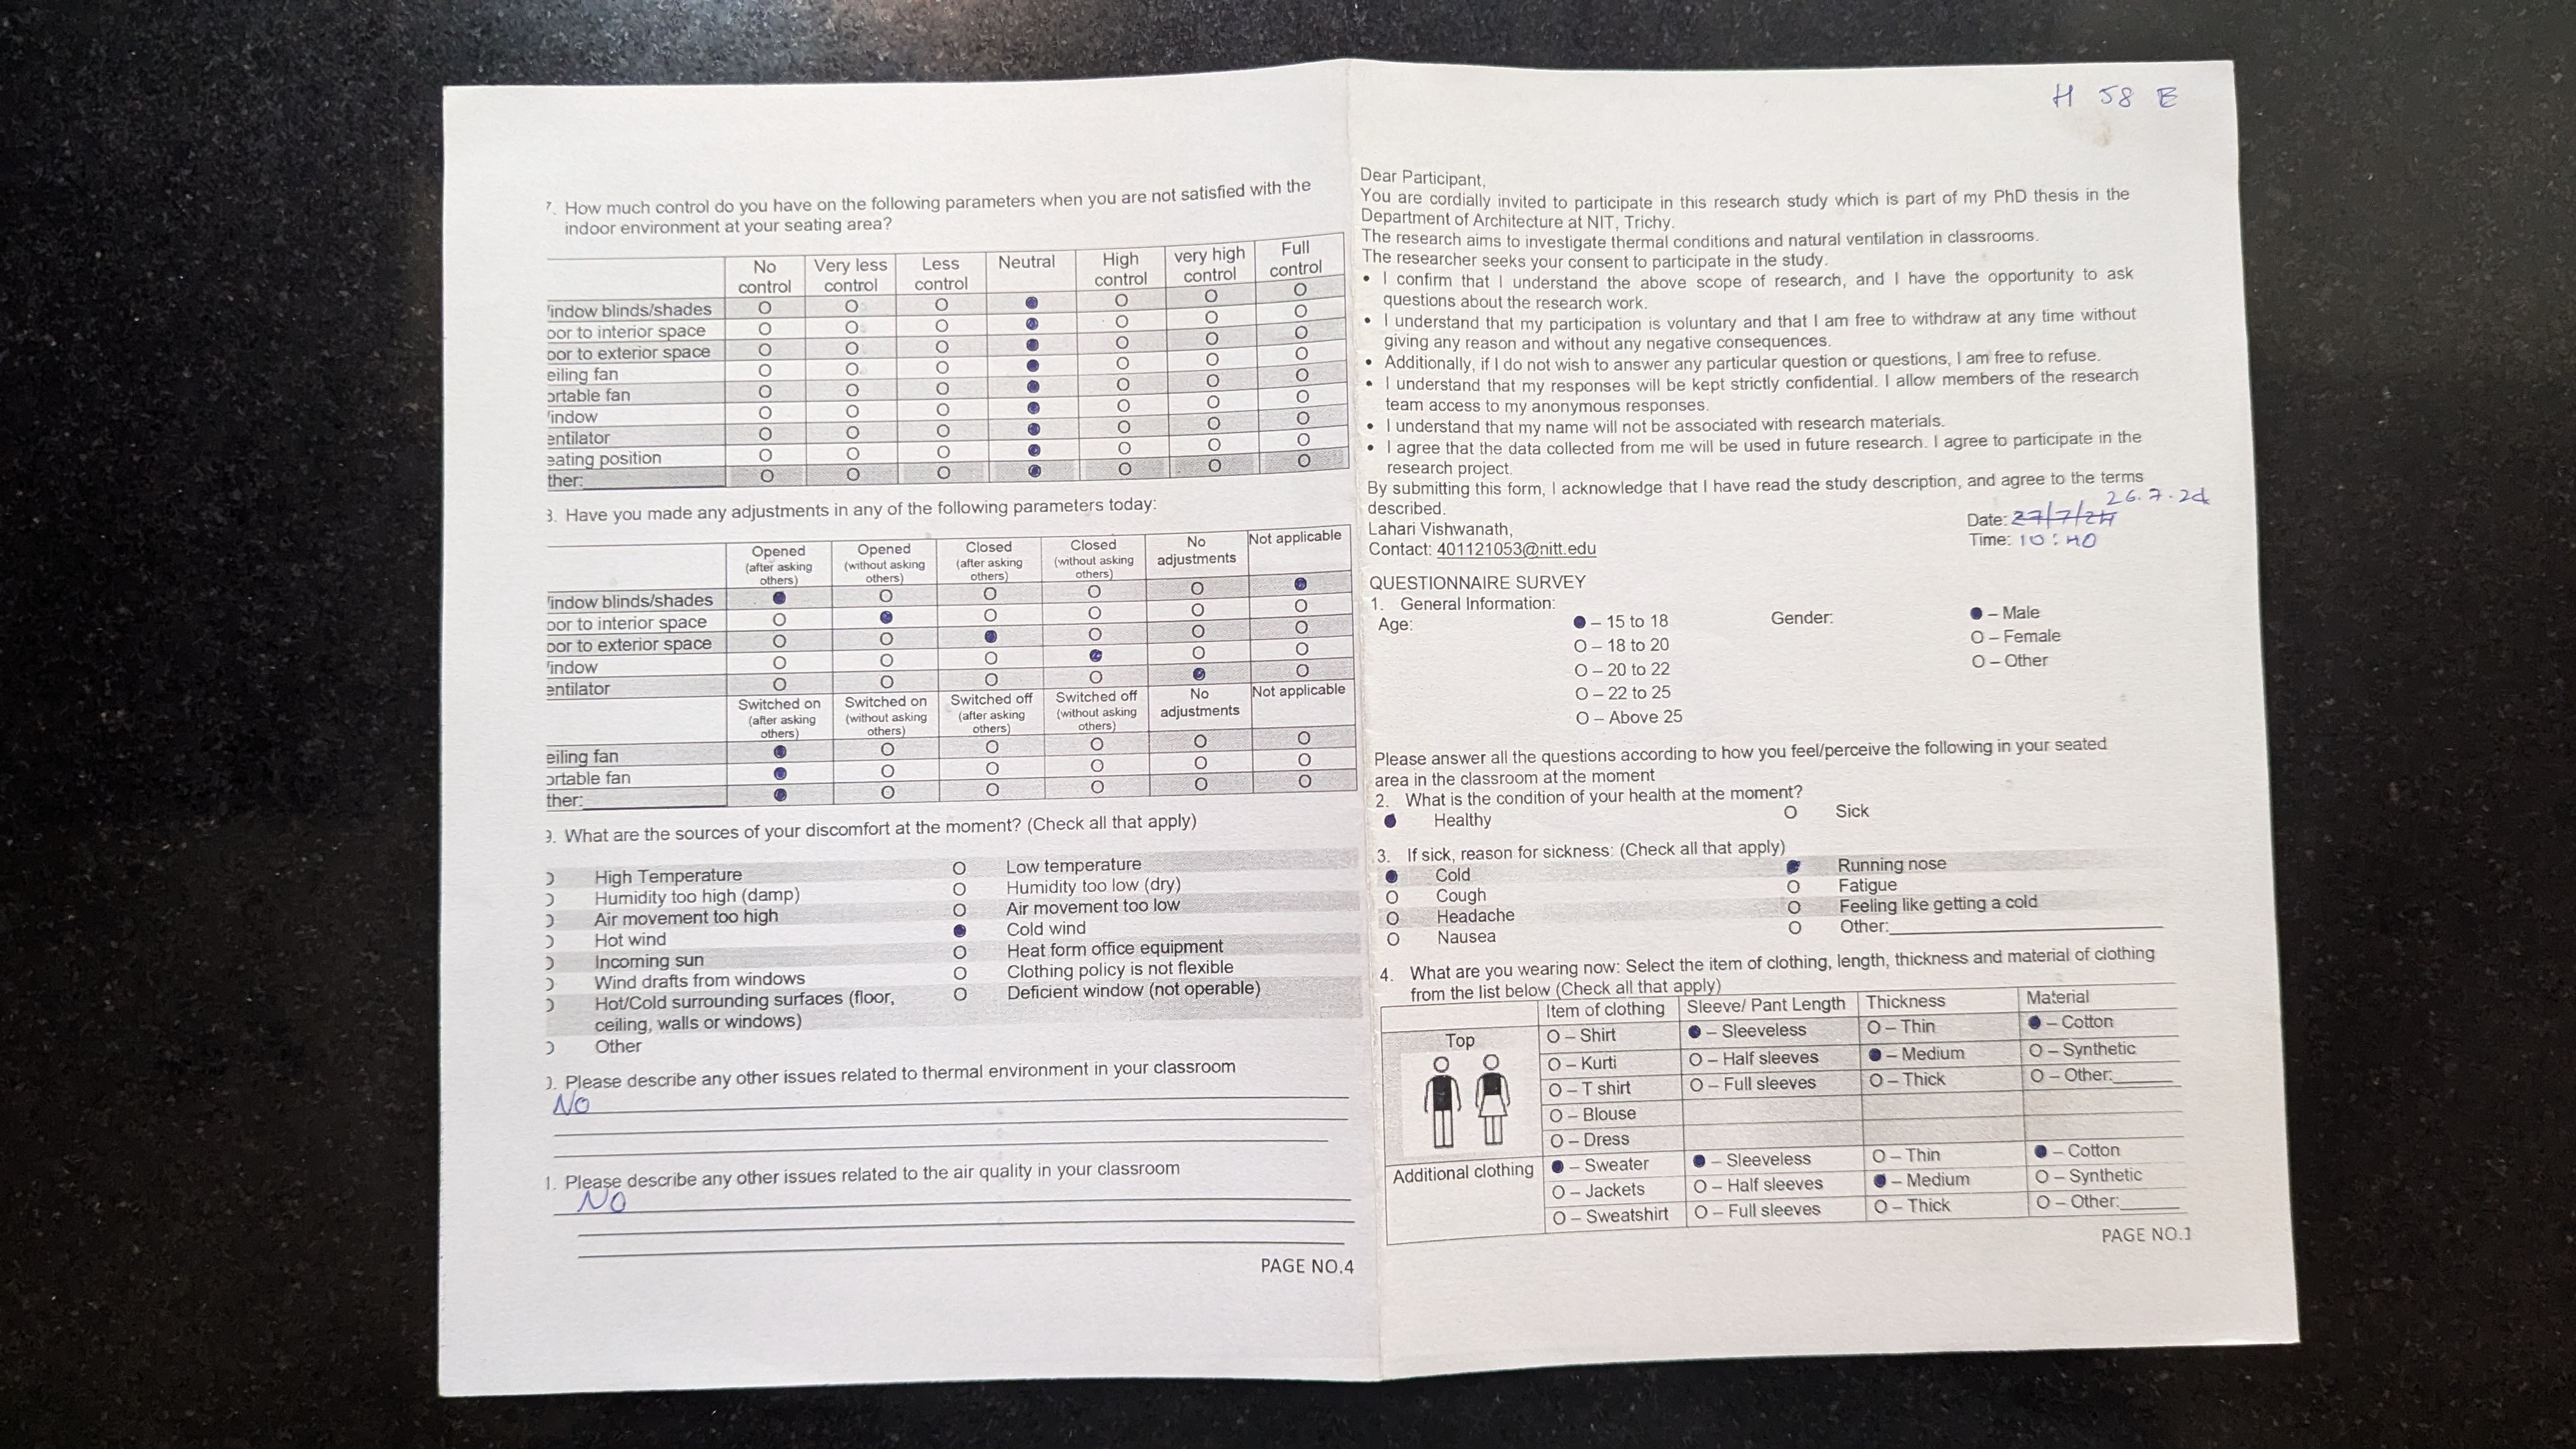 7. How much control do you have on the following parameters when you are not satisfied with the
indoor environment at your seating area?
No control Very less control Less control Neutral High control very high control Full control
indow blinds/shades O O O ● O O O
oor to interior space O O O ● O O O
oor to exterior space O O O ● O O O
eiling fan O O O ● O O O
ortable fan O O O ● O O O
indow O O O ● O O O
entilator O O O ● O O O
eating position O O O ● O O O
ther:________ O O O ● O O O
3. Have you made any adjustments in any of the following parameters today:
Opened (after asking others) Opened (without asking others) Closed (after asking others) Closed (without asking others) No adjustments Not applicable
indow blinds/shades ● O O O O ●
oor to interior space O ● O O O O
oor to exterior space O O ● O O O
indow O O O ● O O
entilator O O O O ● O
Switched on (after asking others) Switched on (without asking others) Switched off (after asking others) Switched off (without asking others) No adjustments Not applicable
eiling fan ● O O O O O
ortable fan ● O O O O O
ther:________ ● O O O O O
9. What are the sources of your discomfort at the moment? (Check all that apply)
High Temperature O Low temperature
Humidity too high (damp) O Humidity too low (dry)
Air movement too high O Air movement too low
Hot wind ● Cold wind
Incoming sun O Heat form office equipment
Wind drafts from windows O Clothing policy is not flexible
Hot/Cold surrounding surfaces (floor, O Deficient window (not operable)
ceiling, walls or windows)
Other
). Please describe any other issues related to thermal environment in your classroom
No
1. Please describe any other issues related to the air quality in your classroom
NO
PAGE NO.4
H 58 E
Dear Participant,
You are cordially invited to participate in this research study which is part of my PhD thesis in the
Department of Architecture at NIT, Trichy.
The research aims to investigate thermal conditions and natural ventilation in classrooms.
The researcher seeks your consent to participate in the study.
• I confirm that I understand the above scope of research, and I have the opportunity to ask
questions about the research work.
• I understand that my participation is voluntary and that I am free to withdraw at any time without
giving any reason and without any negative consequences.
• Additionally, if I do not wish to answer any particular question or questions, I am free to refuse.
• I understand that my responses will be kept strictly confidential. I allow members of the research
team access to my anonymous responses.
• I understand that my name will not be associated with research materials.
• I agree that the data collected from me will be used in future research. I agree to participate in the
research project.
By submitting this form, I acknowledge that I have read the study description, and agree to the terms
described.
26.7.24
Lahari Vishwanath, Date: 27/7/24
Contact: 401121053@nitt.edu Time: 10:40
QUESTIONNAIRE SURVEY
1. General Information:
Age: ● – 15 to 18 Gender: ● – Male
O – 18 to 20 O – Female
O – 20 to 22 O – Other
O – 22 to 25
O – Above 25
Please answer all the questions according to how you feel/perceive the following in your seated
area in the classroom at the moment
2. What is the condition of your health at the moment?
● Healthy O Sick
3. If sick, reason for sickness: (Check all that apply)
● Cold ● Running nose
O Cough O Fatigue
O Headache O Feeling like getting a cold
O Nausea O Other:________
4. What are you wearing now: Select the item of clothing, length, thickness and material of clothing
from the list below (Check all that apply)
Item of clothing Sleeve/ Pant Length Thickness Material
Top O – Shirt ● – Sleeveless O – Thin ● – Cotton
O – Kurti O – Half sleeves ● – Medium O – Synthetic
O – T shirt O – Full sleeves O – Thick O – Other:______
O – Blouse
O – Dress
Additional clothing ● – Sweater ● – Sleeveless O – Thin ● – Cotton
O – Jackets O – Half sleeves ● – Medium O – Synthetic
O – Sweatshirt O – Full sleeves O – Thick O – Other:______
PAGE NO.1